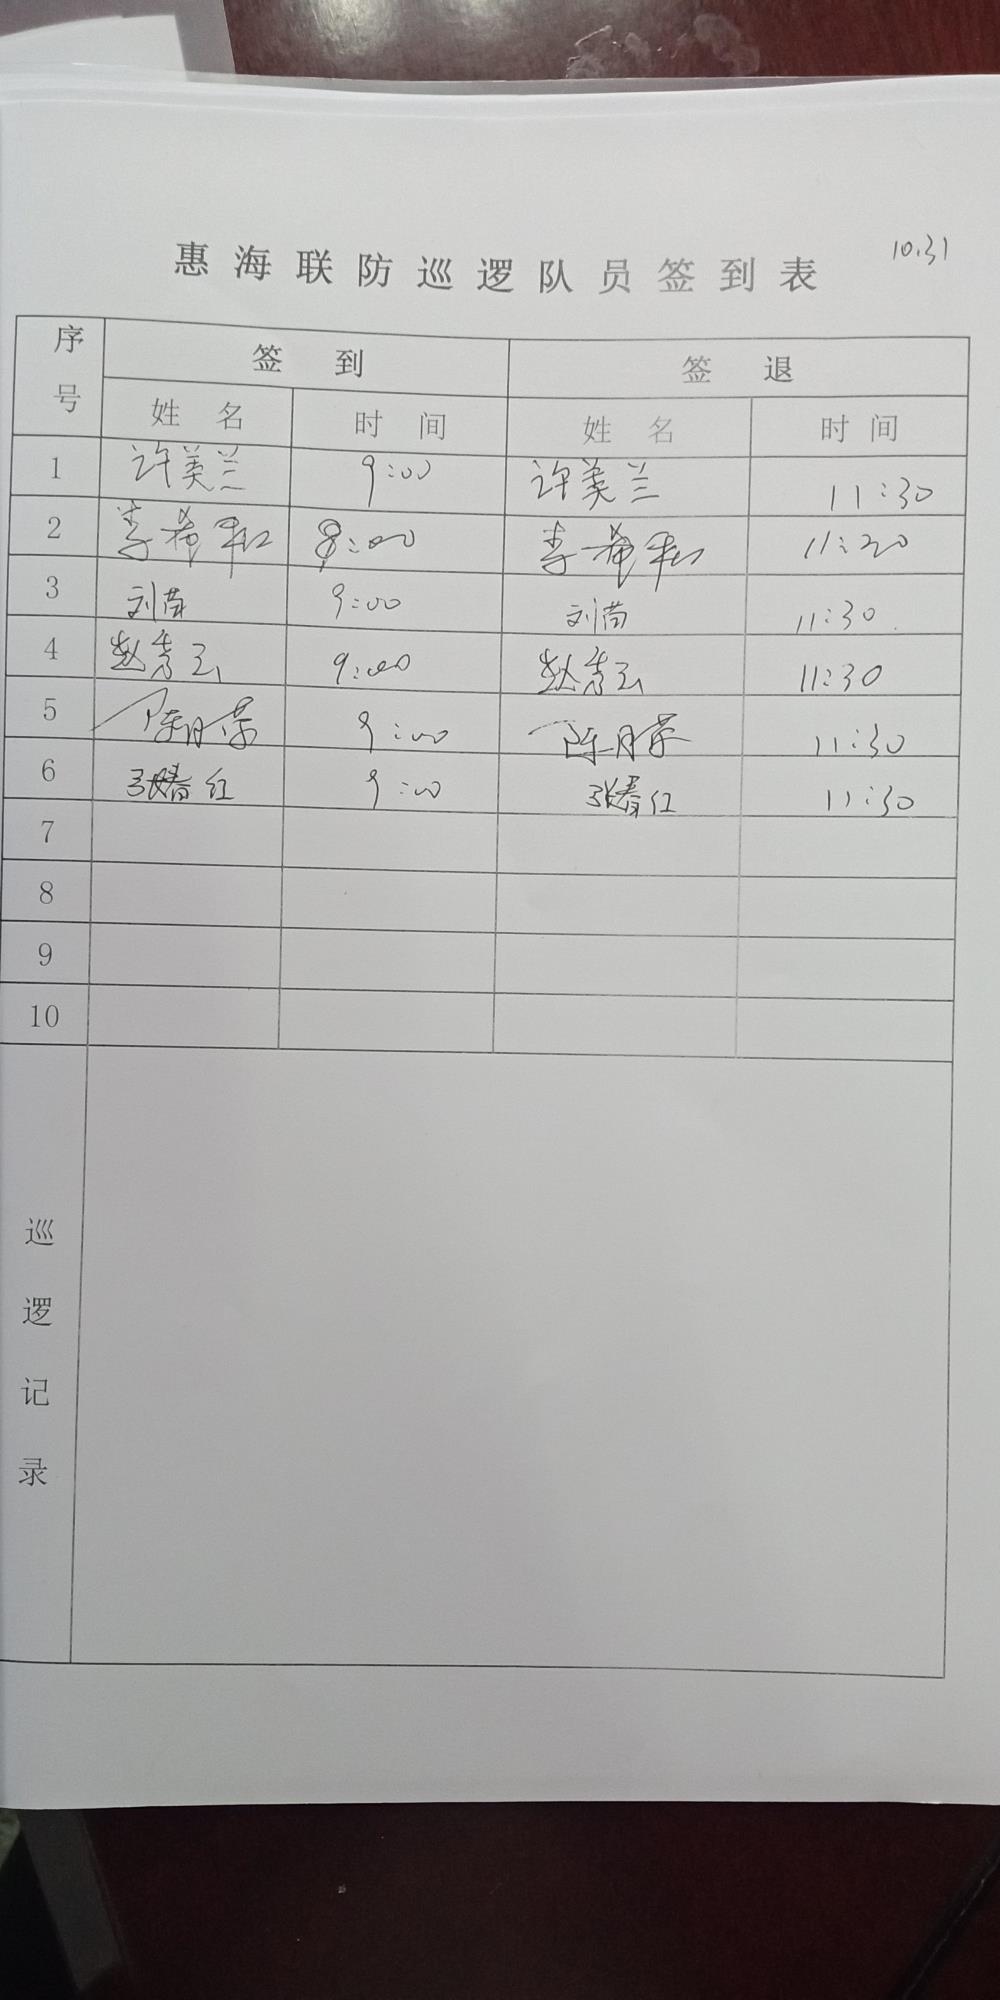 惠海联防巡逻队员签到表 10.31
序号 签到 签退
姓名 时间 姓名 时间
1 许美兰 9:00 许美兰 11:30
2 李希 :00 李希 11:20
3 刘苗 9:00 刘苗 11:30
4 赵秀云 9:00 赵秀云 11:30
5 陈月荣 9:00 陈月荣 11:30
6 张春红 9:00 张春红 11:30
7
8
9
10
巡逻记录